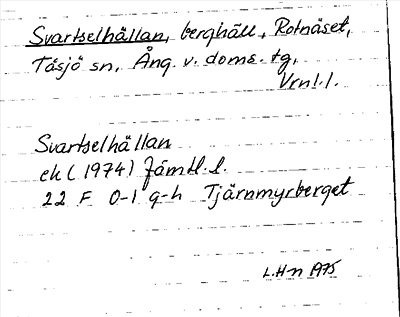 Svartselhällan, berghäll, Rotnäset,
Tåsjö sn, Ång. v. doms. tg,
Vrnl.l.
Svartselhällan
ek (1974) Jämtl.l.
22 F 0-1 g-h Tjärnmyrberget
L.H-n 1975